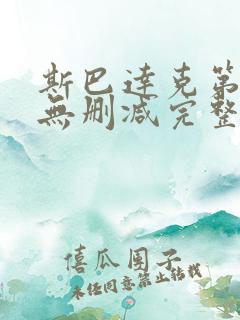 斯巴達克第
無删减完整
僖瓜围子
未任同意禁止转载